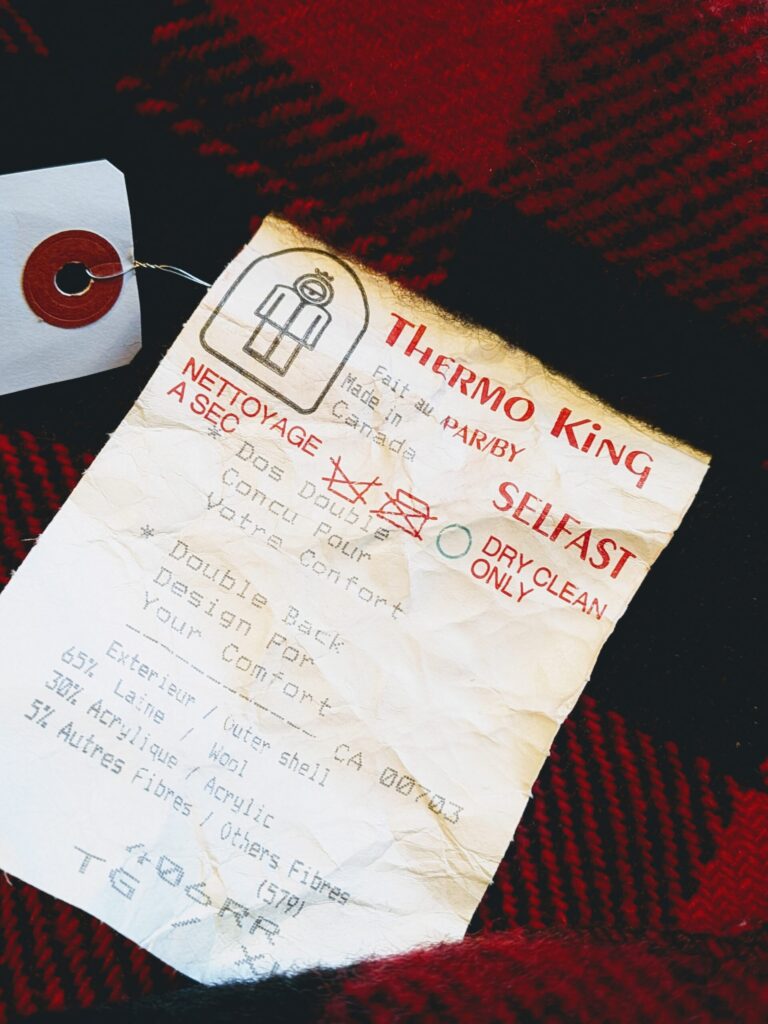 Thermo King
Fait au
Made in
Canada
PAR/BY
SELFAST
NETTOYAGE
A SEC
DRY CLEAN
ONLY
* Dos Double
Concu Pour
Votre Confort
* Double Back
Design For
Your Comfort
Exterieur / Outer shell
65% Laine / Wool
30% Acrylique / Acrylic
5% Autres Fibres / Others Fibres
CA 00703
(579)
406RR
TG / XL